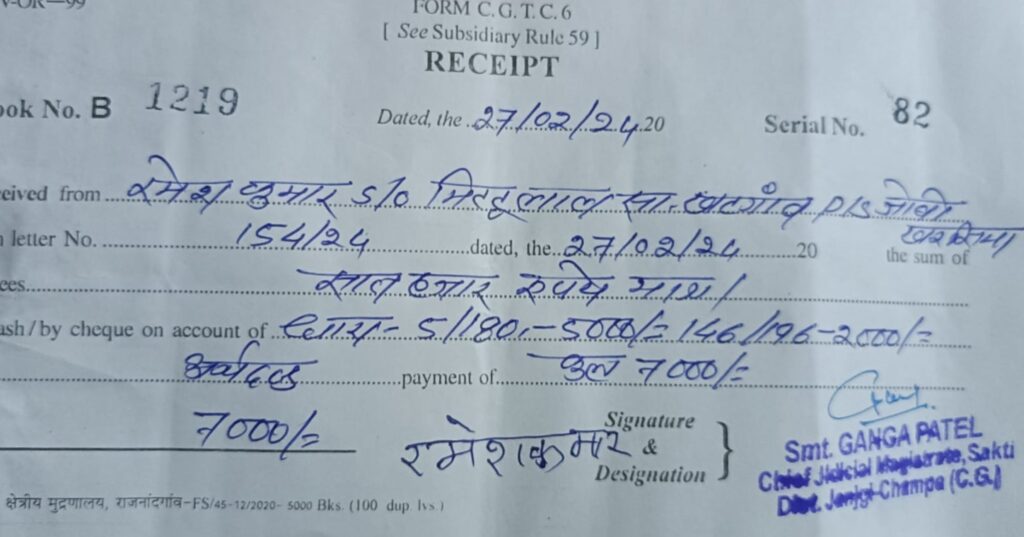 FORM C. G. T. C. 6
[ See Subsidiary Rule 59 ]
RECEIPT
ook No. B 1219 Dated, the 27/02/24 20 Serial No. 82
eived from रमेश कुमार S/O मिट्ठूलाल सा. खटगांव P/S जोबी
letter No. 154/24 dated, the 27/02/24 20 the sum of
ees सात हजार रूपये मात्र /
ash / by cheque on account of धारा- 5/180,-5000/= 146/196-2000/=
अर्थदण्ड payment of कुल 7000/=
7000/= रमेशकुमार Signature & Designation
Smt. GANGA PATEL
Chief Jidicial Magistrate, Sakti
Dist. Janjgi-Champa (C.G.)
क्षेत्रीय मुद्रणालय, राजनांदगाँव-FS/45-12/2020- 5000 Bks. (100 dup. lvs.)